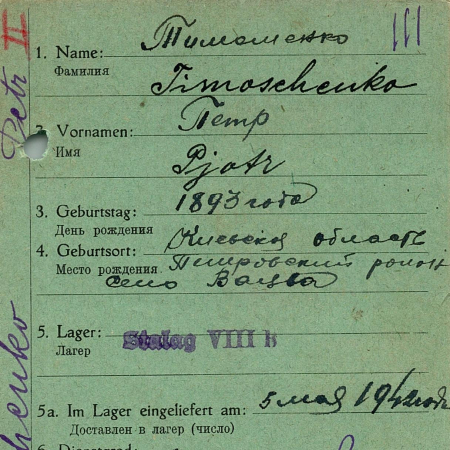 III
1. Name: Тимошенко
Фамилия
Timoschenko
2. Vornamen: Петр
Имя
Pjotr
3. Geburtstag: 1893 года
День рождения
4. Geburtsort: Киевская область
Место рождения Петровский район
село
5. Lager: Stalag VIII B
Лагер
5a. Im Lager eingeliefert am: 5 мая 1942 года
Доставлен в лагер (число)
Petr II